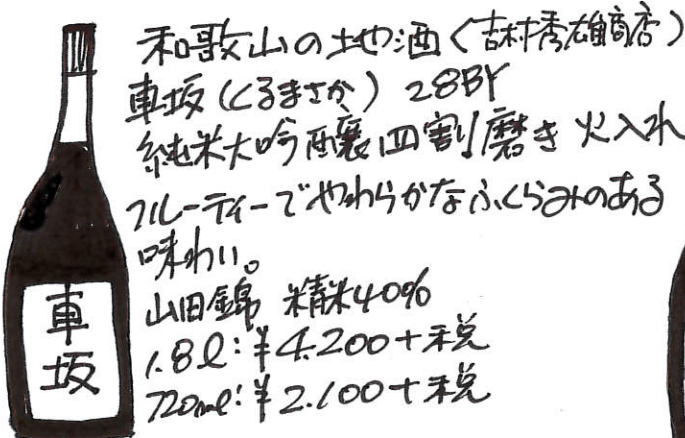 和歌山の地酒(吉村秀雄商店)
車坂(くるまさか) 28BY
純米大吟醸四割磨き 火入れ
フルーティーでやわらかなふくらみのある
味わい。
山田錦 精米40%
1.8ℓ:¥4.200+税
720mℓ:¥2.100+税
車坂